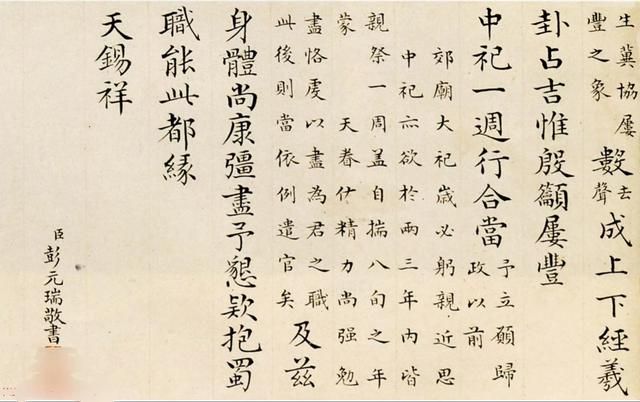 生冀協屢
豐之象
數去聲成上下經羲
卦占吉惟殷籲屢豐
中祀一週行合當
予立願歸
政以前
郊廟大祀歲必躬親近思
中祀亦欲於兩三年內皆
親祭一周盖自揣八旬之年
蒙 天眷佑精力尚强勉
盡恪虔以盡為君之職
此後則當依例遣官矣
及兹
身體尚康彊盡予懇欵抱蜀
職能此都緣
天錫祥
臣彭元瑞敬書